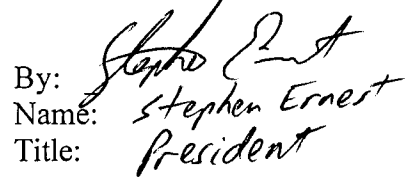 By: Stephen Ernest
Name: Stephen Ernest
Title: President